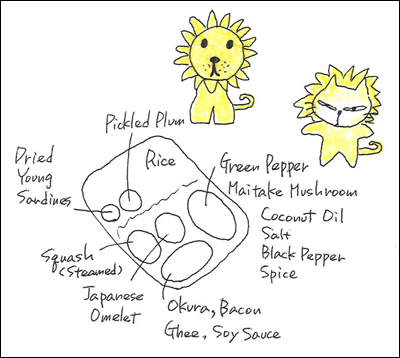 Pickled Plum
Rice
Dried
Young
Sandines
Green Pepper
Maitake Mushroom
Coconut Oil
Salt
Black Pepper
Spice
Squash
(Steamed)
Japanese
Omelet
Okura, Bacon
Ghee, Soy Sauce